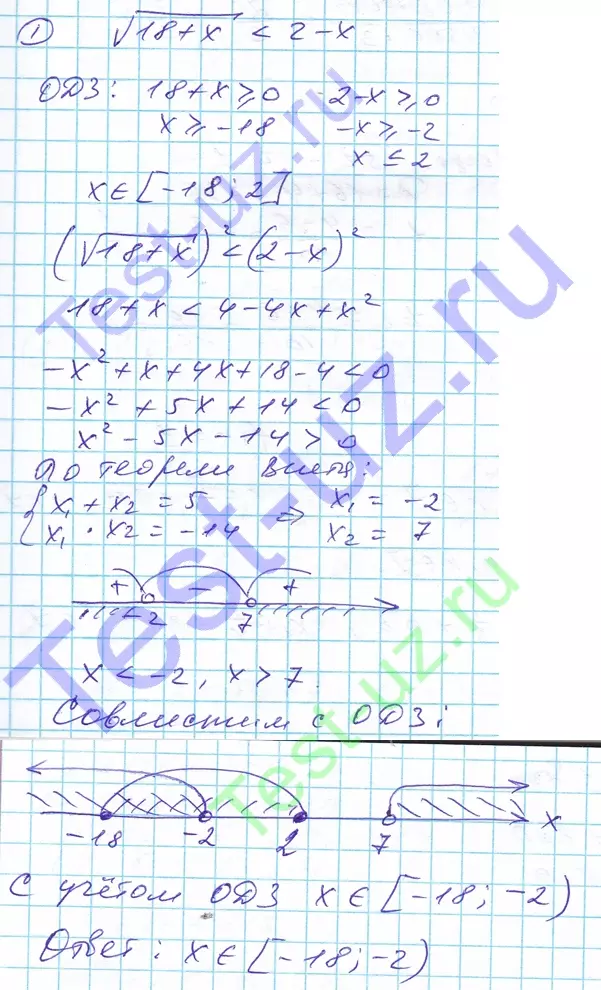 ① √18+x < 2-x
ОДЗ: 18+x ≥ 0   2-x ≥ 0
x ≥ -18   -x ≥ -2
x ≤ 2
x ∈ [-18; 2]
(√18+x)² < (2-x)²
18+x < 4-4x+x²
-x²+x+4x+18-4<0
-x²+5x+14<0
x²-5x-14>0
По теореме Виета:
{ x₁+x₂=5   ⇒ x₁ = -2
x₁·x₂=-14   x₂ = 7
+ - +
-2 7
x < -2, x > 7.
Совместим с ОДЗ:
-18 -2 2 7 x
С учётом ОДЗ x ∈ [-18; -2)
Ответ: x ∈ [-18; -2)
Test-uz.ru
Test-uz.ru
Test-uz.ru